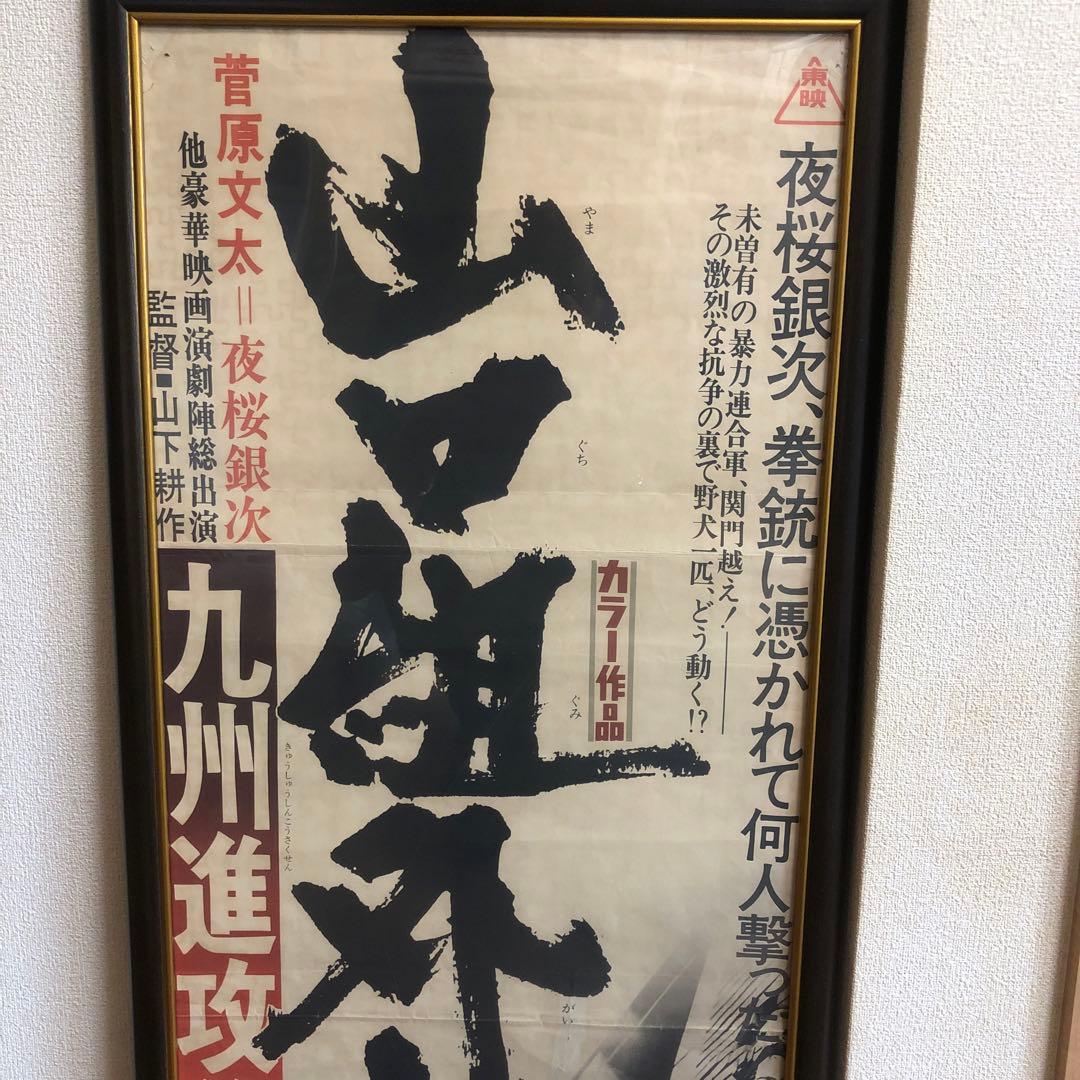 東映
夜桜銀次、拳銃に憑かれて何人撃った
未曽有の暴力連合軍、関門越え！
その激烈な抗争の裏で野犬一匹、どう動く!?
カラー作品
山口組外
やま
ぐち
ぐみ
がい
菅原文太＝夜桜銀次
他豪華映画演劇陣総出演
監督■山下耕作
九州進攻
きゅうしゅうしんこうさくせん